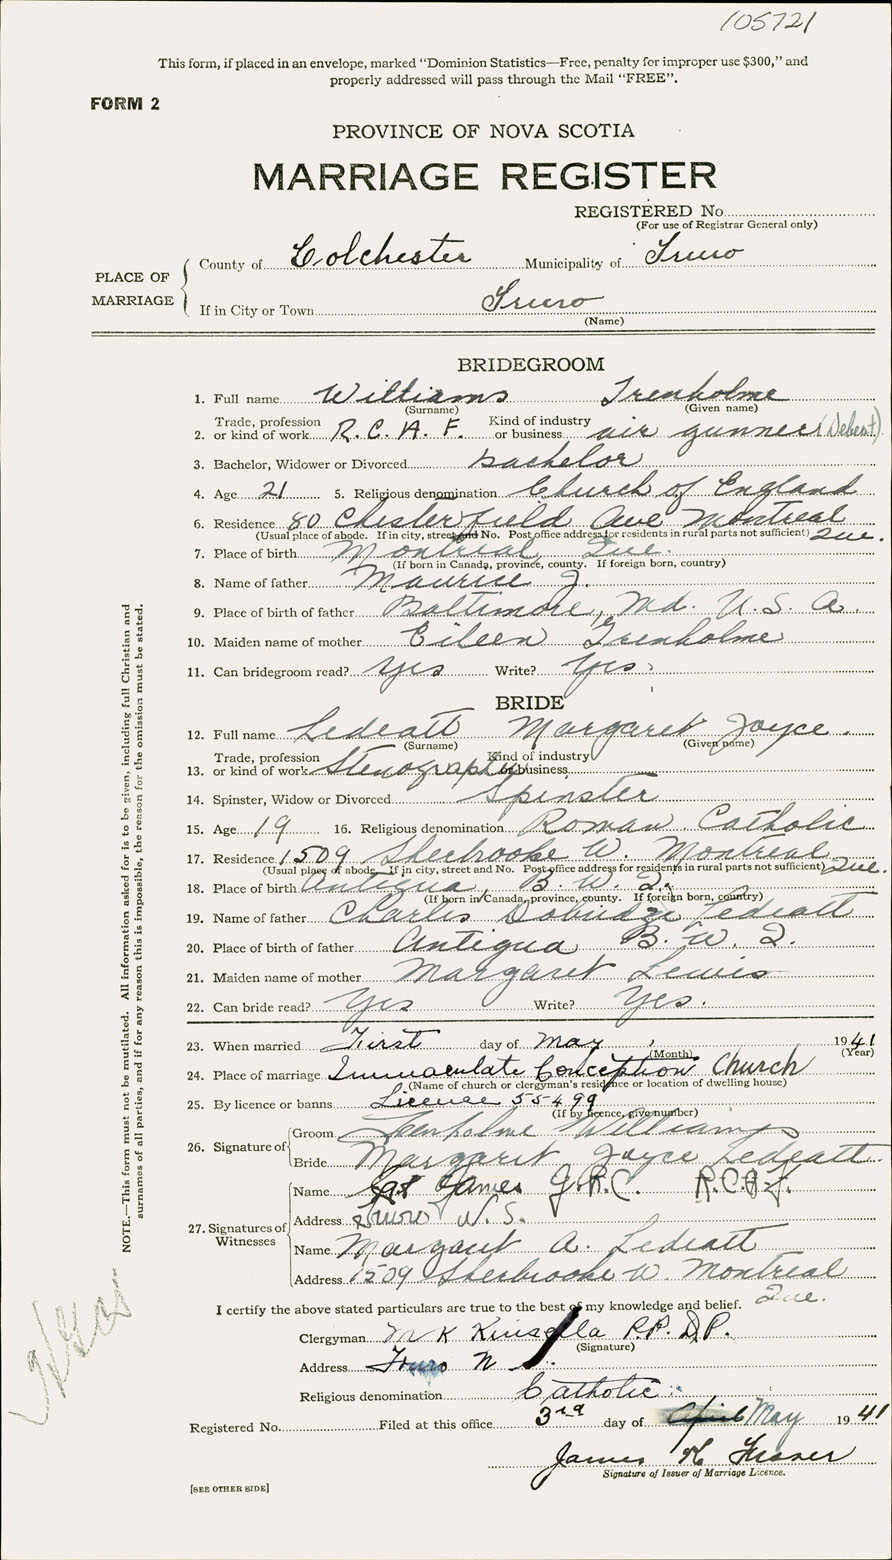 105721
This form, if placed in an envelope, marked "Dominion Statistics—Free, penalty for improper use $300," and
properly addressed will pass through the Mail "FREE".
FORM 2
PROVINCE OF NOVA SCOTIA
MARRIAGE REGISTER
REGISTERED No.
(For use of Registrar General only)
PLACE OF MARRIAGE
County of Colchester Municipality of Truro
If in City or Town Truro
(Name)
BRIDEGROOM
1. Full name Williams Trenholme
(Surname) (Given name)
2. Trade, profession or kind of work R.C.A.F. Kind of industry or business air gunner (Debert)
3. Bachelor, Widower or Divorced bachelor
4. Age 21 5. Religious denomination Church of England
6. Residence 80 Chesterfield Ave Montreal Que.
(Usual place of abode. If in city, street and No. Post office address for residents in rural parts not sufficient)
7. Place of birth Montreal Que.
(If born in Canada, province, county. If foreign born, country)
8. Name of father Maurice J.
9. Place of birth of father Baltimore, Md. U.S.A.
10. Maiden name of mother Eileen Trenholme
11. Can bridegroom read? yes Write? yes
BRIDE
12. Full name Ledeatt Margaret Joyce.
(Surname) (Given name)
13. Trade, profession or kind of work Stenographer Kind of industry or business
14. Spinster, Widow or Divorced Spinster
15. Age 19 16. Religious denomination Roman Catholic
17. Residence 1509 Sherbrooke W. Montreal Que.
(Usual place of abode. If in city, street and No. Post office address for residents in rural parts not sufficient)
18. Place of birth Antigua B.W.I.
(If born in Canada, province, county. If foreign born, country)
19. Name of father Charles Ledeatt
20. Place of birth of father Antigua B.W.I.
21. Maiden name of mother Margaret Lewis
22. Can bride read? Yes Write? Yes.
23. When married First day of May 1941
(Month) (Year)
24. Place of marriage Immaculate Conception Church
(Name of church or clergyman's residence or location of dwelling house)
25. By licence or banns Licence 55499
(If by licence, give number)
26. Signature of
Groom Trenholme Williams
Bride Margaret Joyce Ledeatt.
27. Signatures of Witnesses
Name James G.R.C. R.C.A.F.
Address Truro N.S.
Name Margaret A. Ledeatt
Address 1509 Sherbrooke W. Montreal Que.
I certify the above stated particulars are true to the best of my knowledge and belief.
Clergyman M K Kinsella P.P. D.P.
(Signature)
Address Truro N S.
Religious denomination Catholic
Registered No. Filed at this office 3rd day of April May 1941
James
Signature of Issuer of Marriage Licence.
[SEE OTHER SIDE]
NOTE.—This form must not be mutilated. All information asked for is to be given, including full Christian and
surnames of all parties, and if for any reason this is impossible, the reason for the omission must be stated.